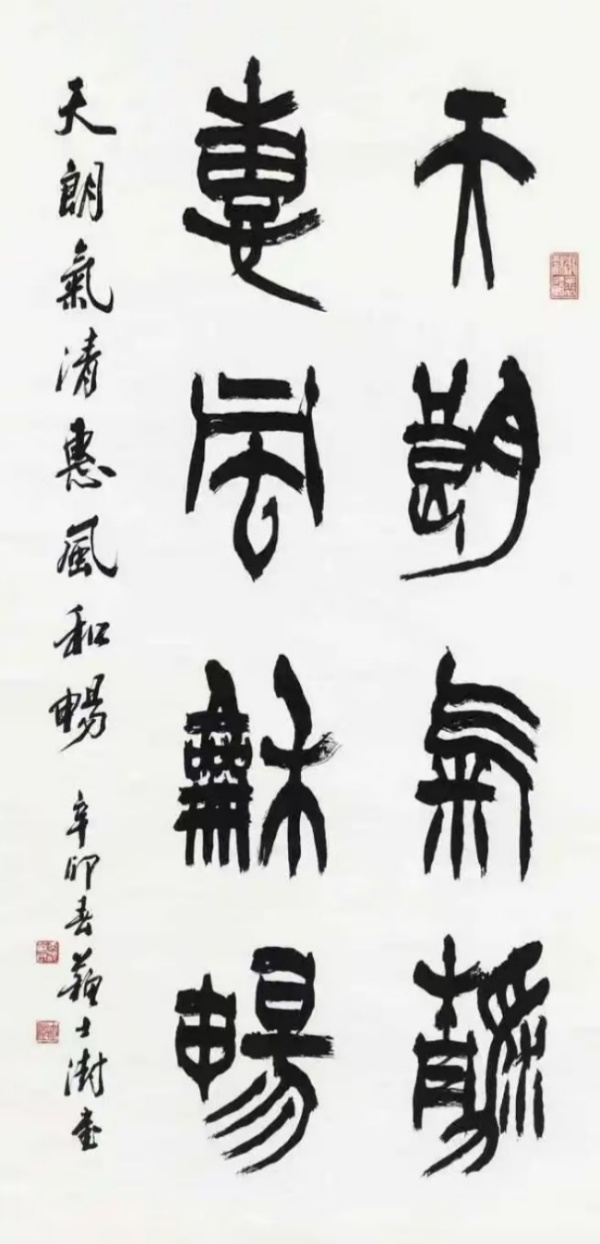 天朗氣清
惠風龢暢
天朗氣清惠風和暢 辛卯春蘇士澍書